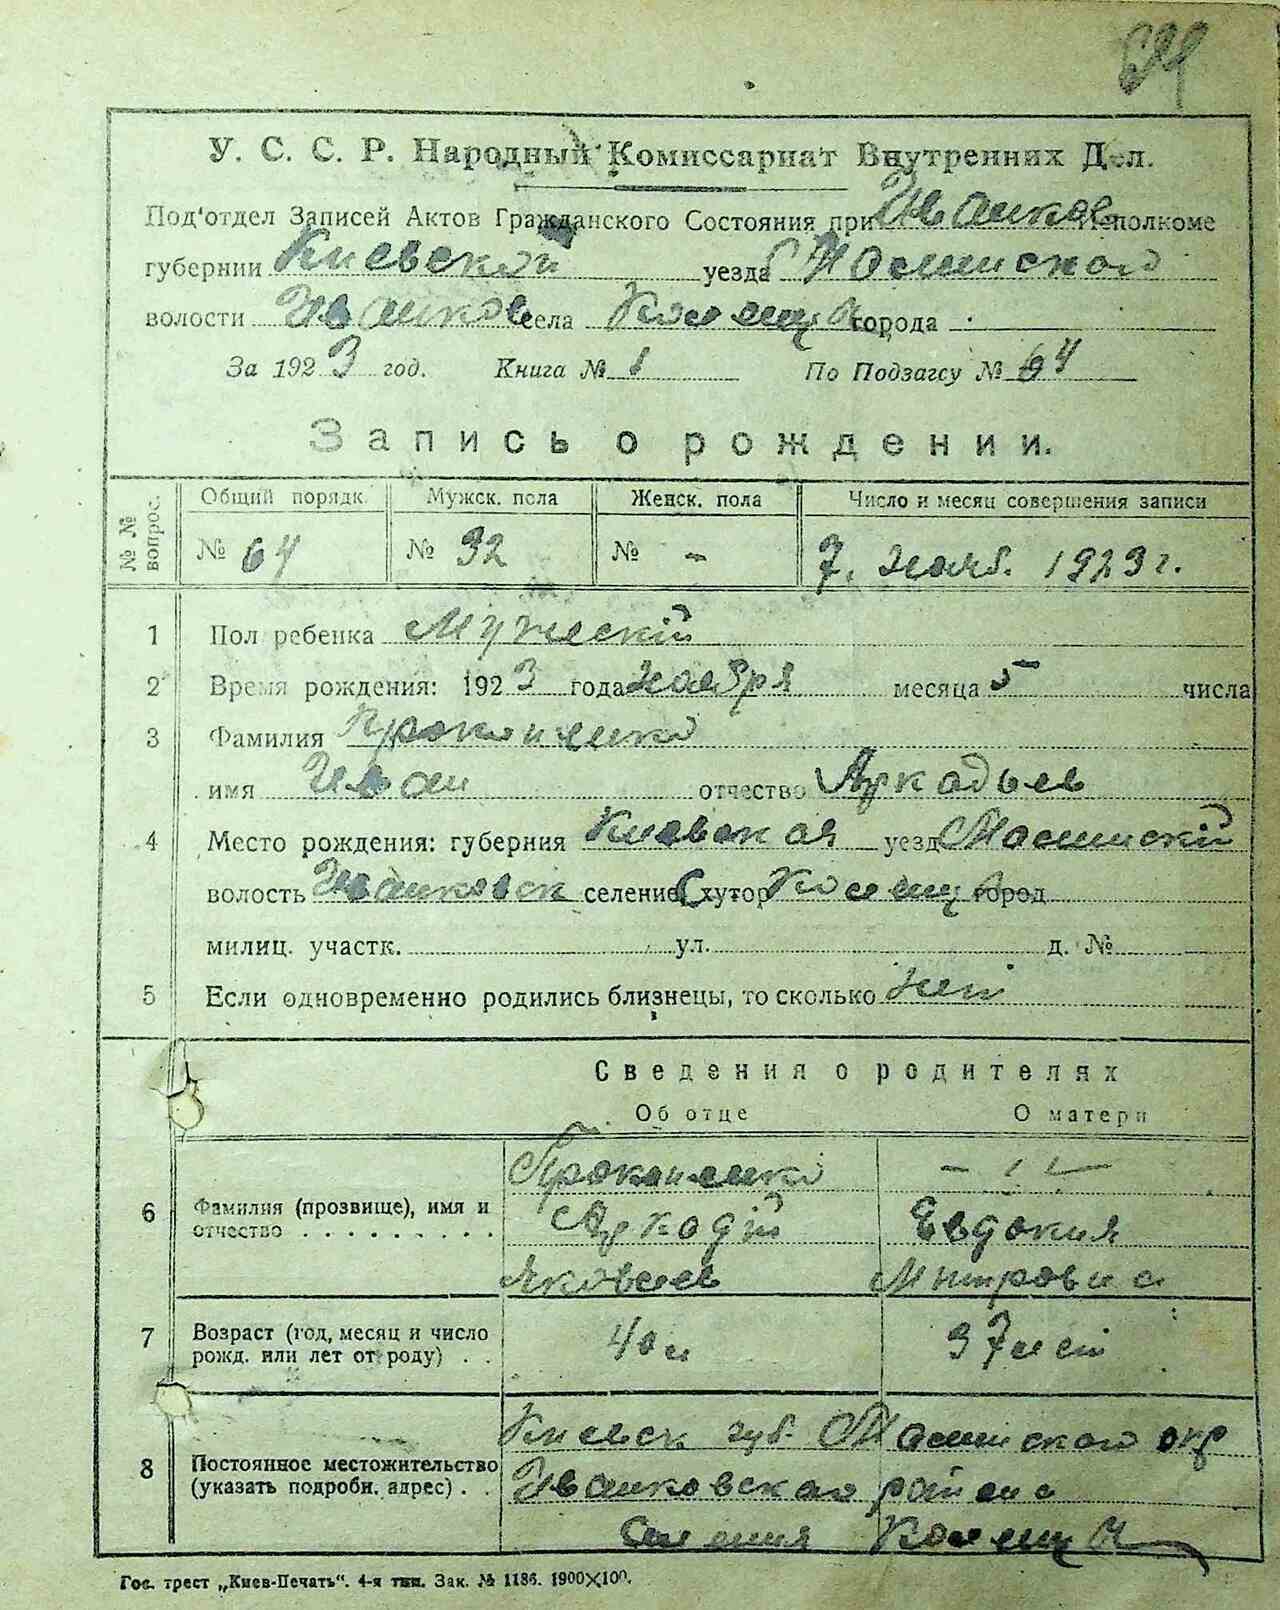 У. С. С. Р. Народный Комиссариат Внутренних Дел.
Под'отдел Записей Актов Гражданского Состояния при Иванков Исполкоме
губернии Киевской уезда
волости Иванков села города
За 1923 год. Книга № 1 По Подзагсу № 64
Запись о рождении.
№ № вопрос. Общий порядк. Мужск. пола Женск. пола Число и месяц совершения записи
№ 64 № 32 № - 7. нояб. 1923 г.
1 Пол ребенка Мужескій
2 Время рождения: 1923 года ноября месяца 5 числа
3 Фамилия Прокопенко
имя Иван отчество Аркадьев
4 Место рождения: губерния Киевская уезд
волость Иванковск селение хутор город
милиц. участк. ул. д. №
5 Если одновременно родились близнецы, то сколько нет
Сведения о родителях
Об отце О матери
6 Фамилия (прозвище), имя и отчество
Прокопенко — ı ı —
Аркадій Евдокия
Яковлев
7 Возраст (год, месяц и число рожд. или лет от роду) 40 л 37 лет
8 Постоянное местожительство (указать подробн. адрес)
Киевск губ. окр
Иванковского района
Селения
Гос. трест „Киев-Печать". 4-я тип. Зак. № 1186. 1900×100.